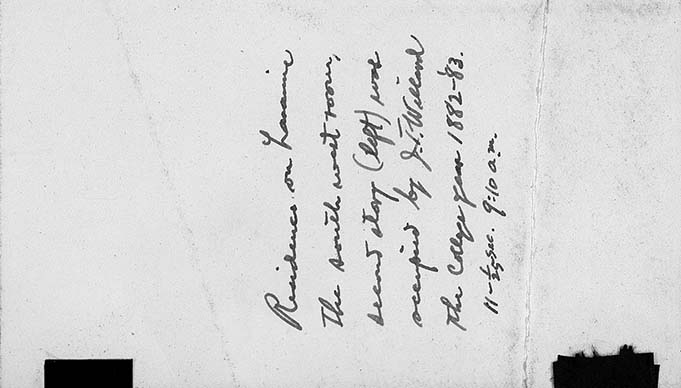 Residence on Laramie
The south west room,
second story (left) was
occupied by J.T. Willard
the College year 1882-83.
11 - 1/25 sec. 9:10 a.m.